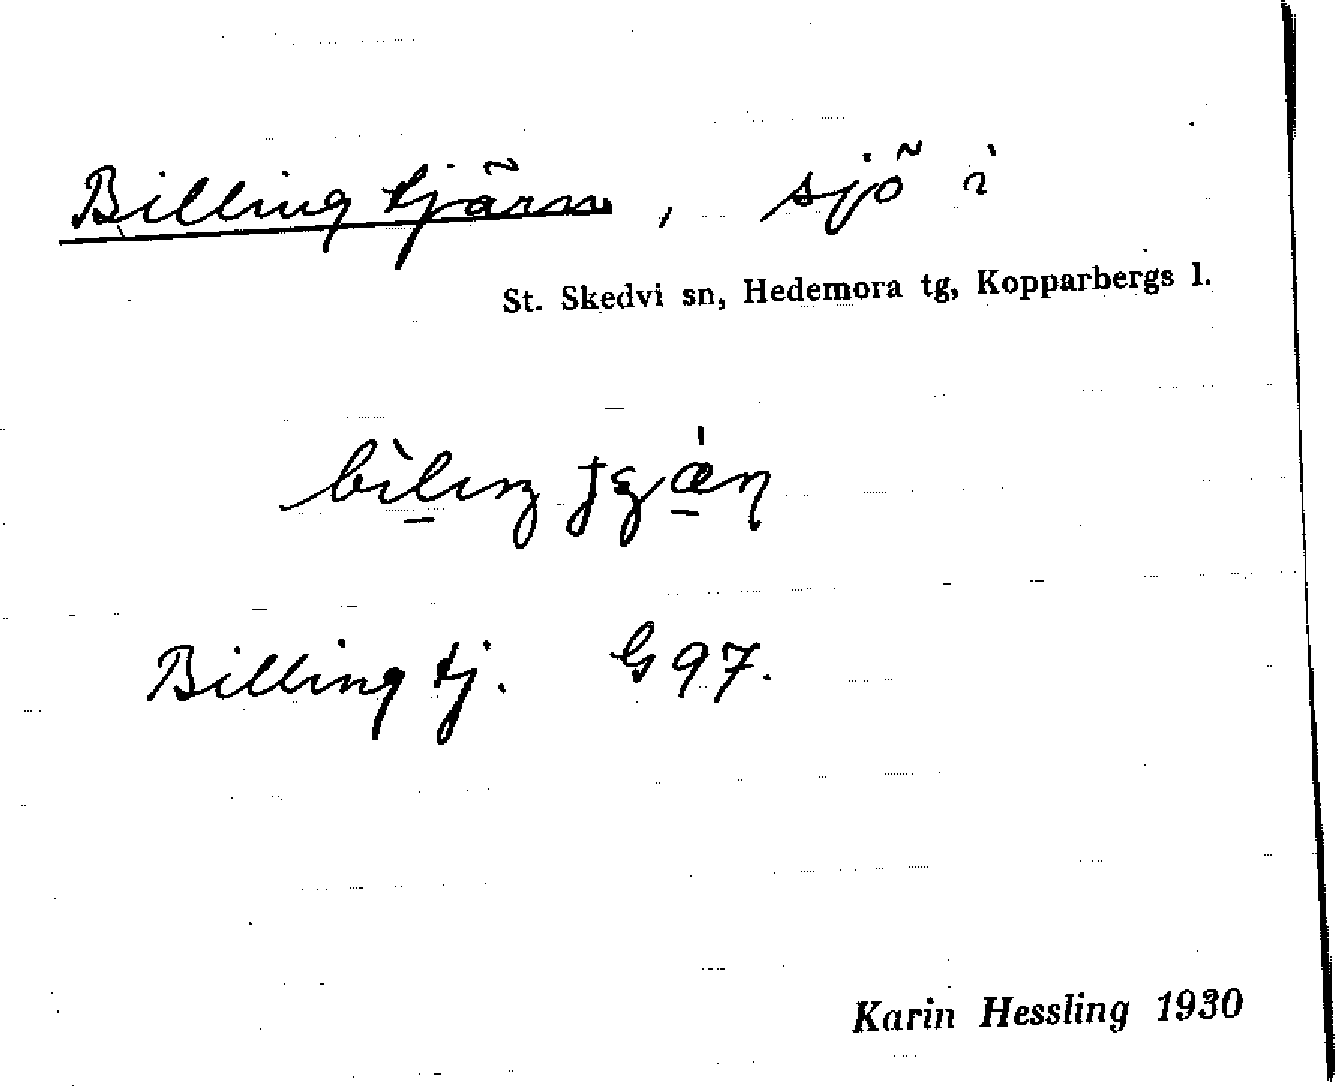 Billingtjärn, sjö i
St. Skedvi sn, Hedemora tg, Kopparbergs l.
Billingtj. G 97.
Karin Hessling 1930